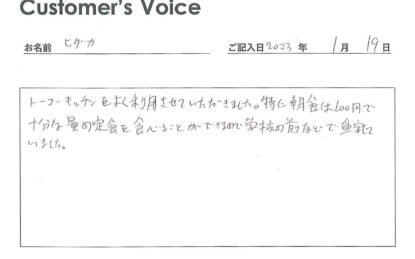 Customer's Voice
お名前 ヒダカ ご記入日 2023 年 1 月 19 日
トーコーキッチンをよく利用させていただきました。特に朝食は100円で
十分な量の定食を食べることができるので学校の前などで重宝して
いました。